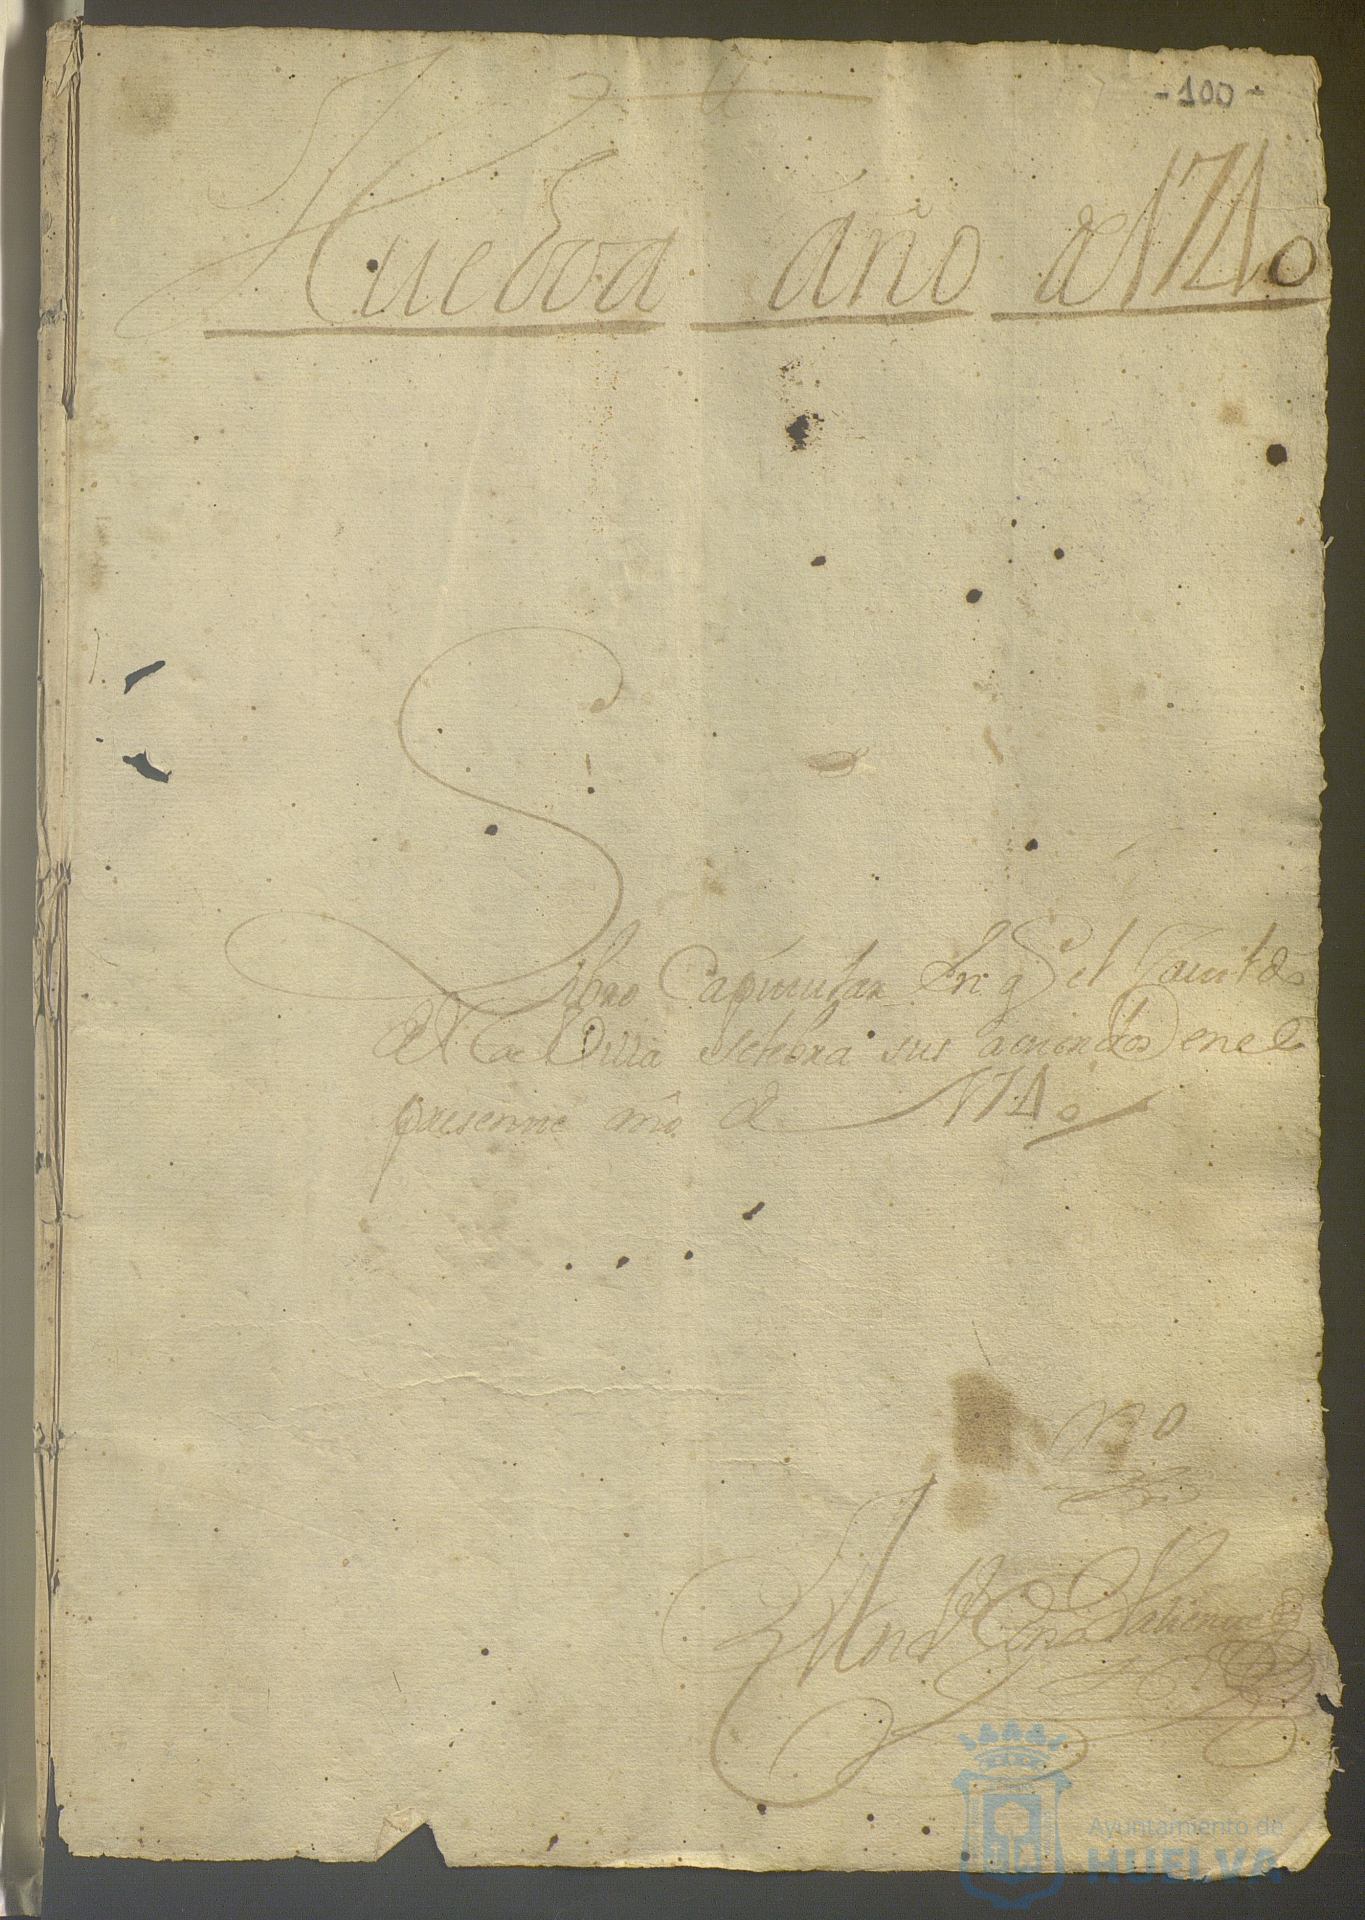 - 100 -
Huelva año de 1740
Libro Capitular En q el Cauildo
de esta Villa selebra sus acuerdos en el
presente año de 1740
SSno
Valiente
Ayuntamiento de
HUELVA